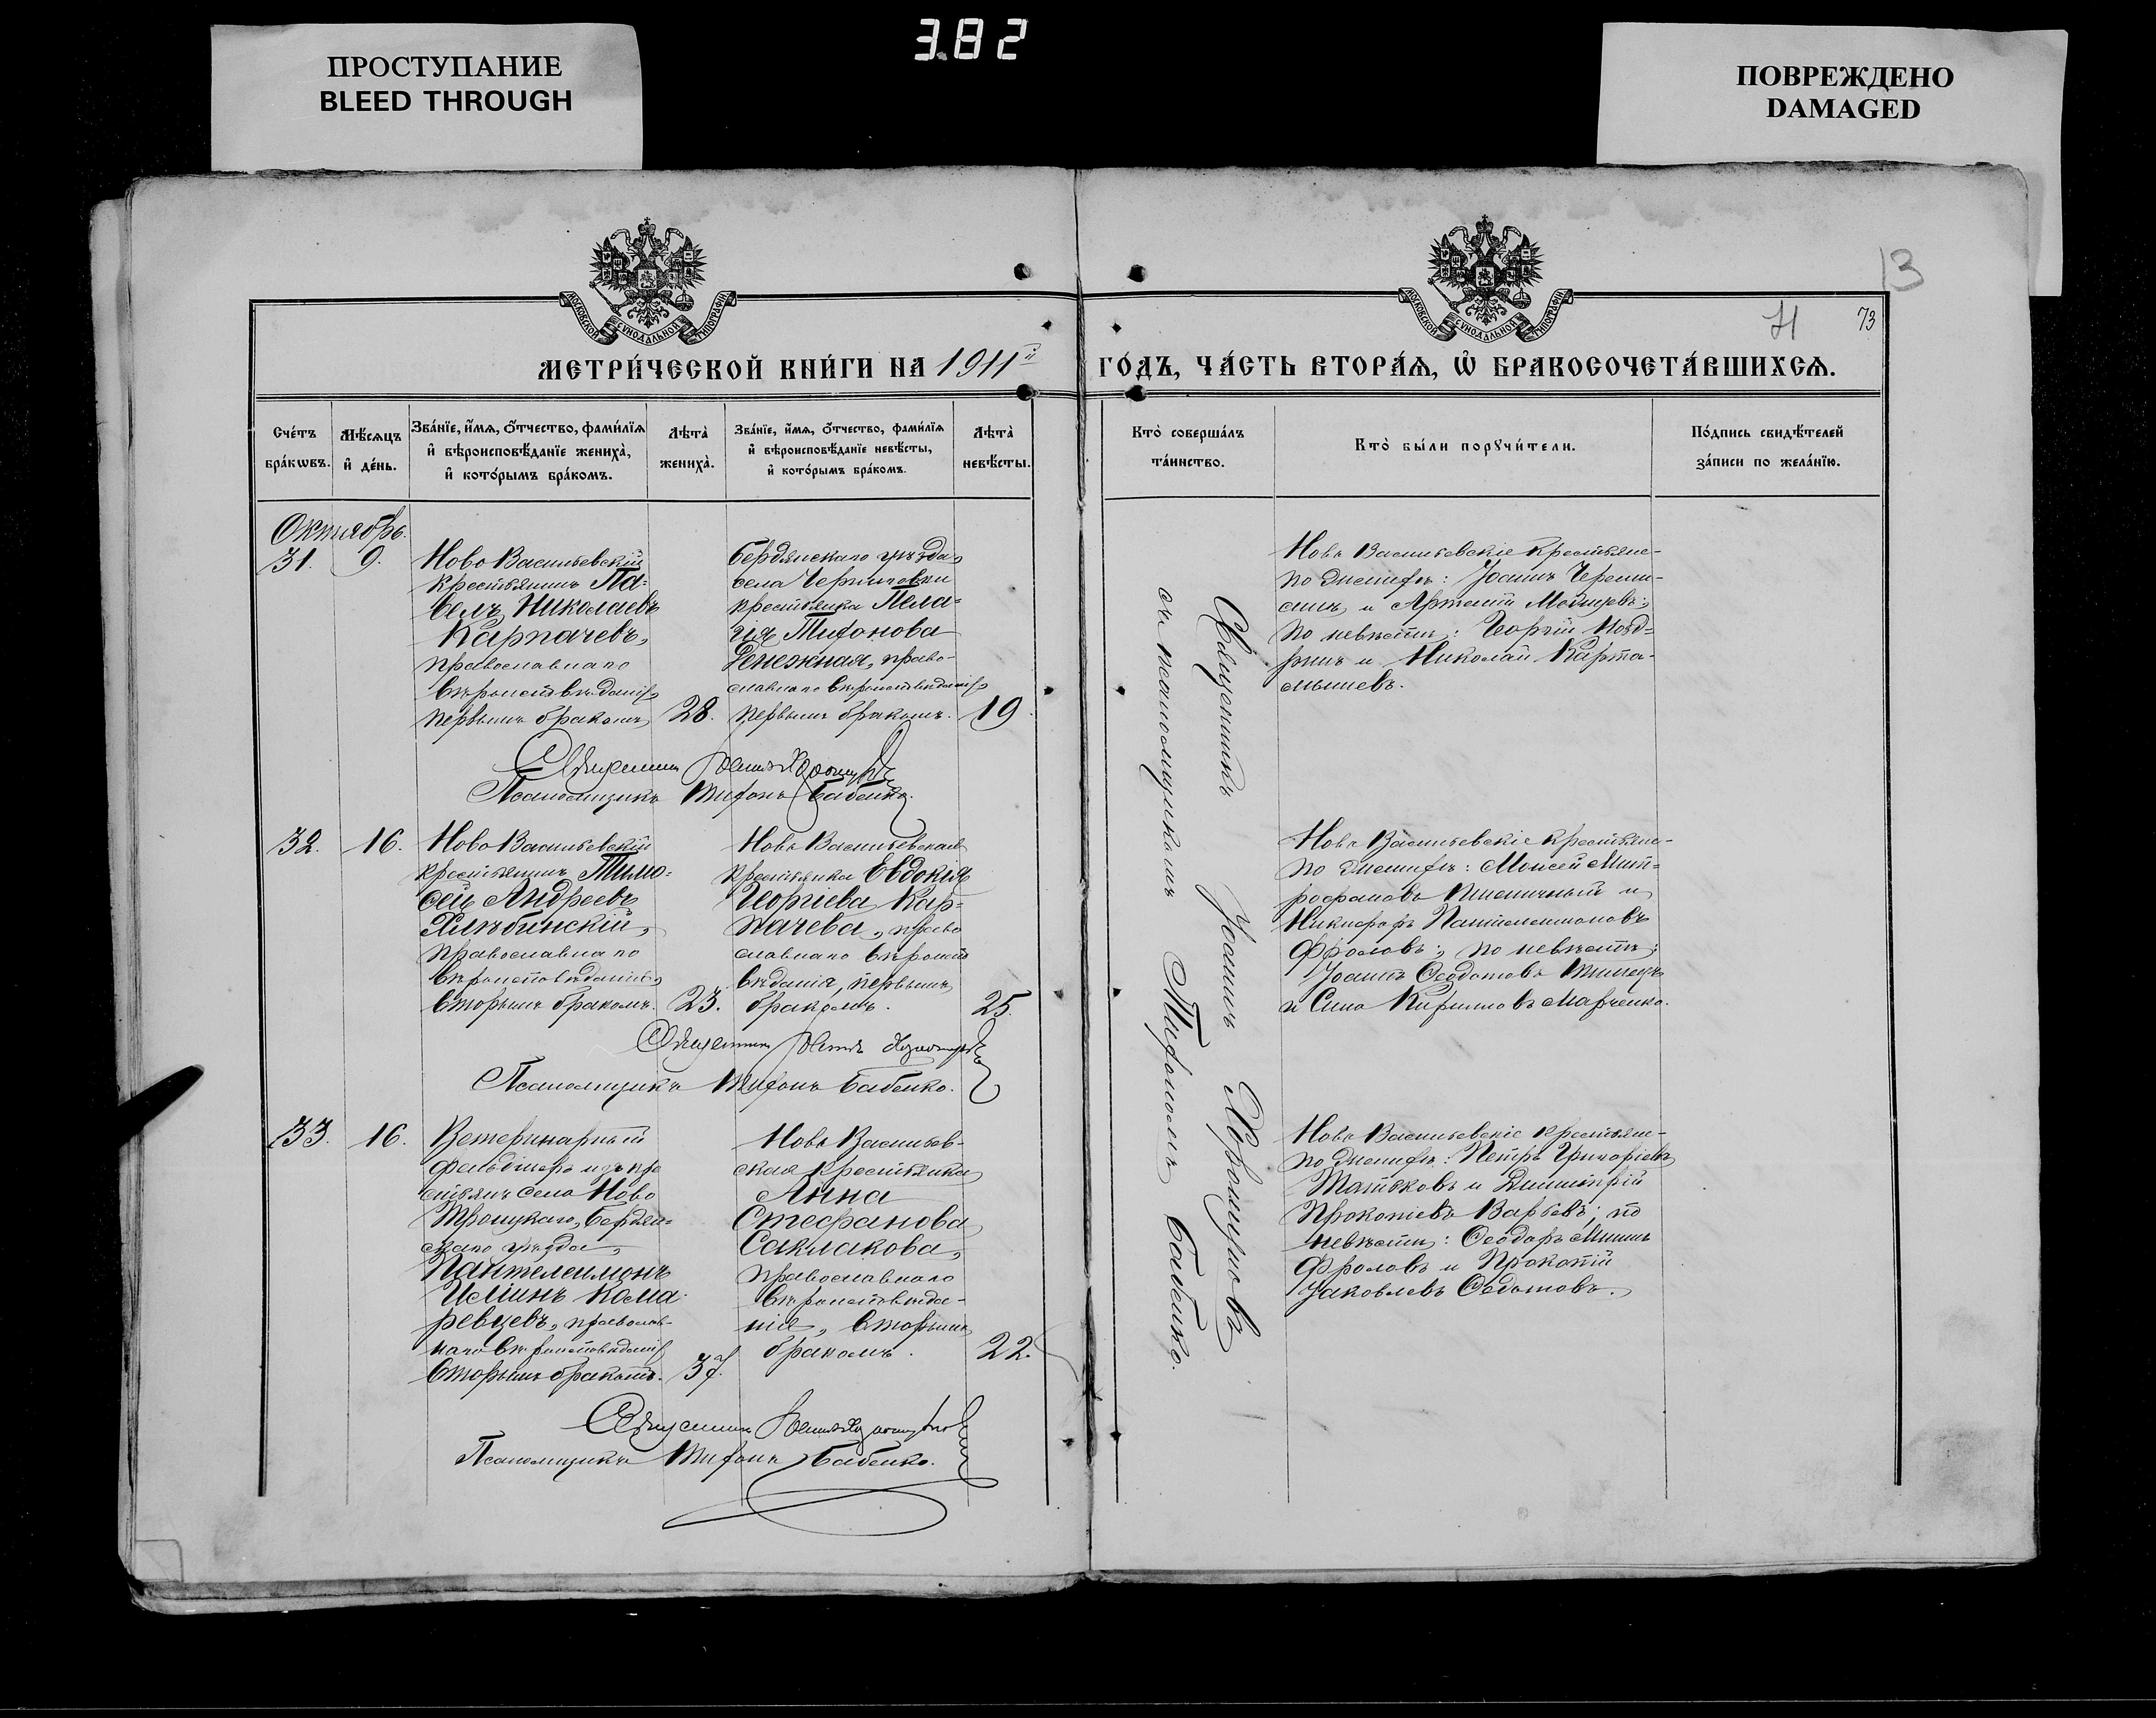 ПРОСТУПАНИЕ
BLEED THROUGH
382
ПОВРЕЖДЕНО
DAMAGED
13
71 73
МОСКОВСКОЙ СѴНОДАЛЬНОЙ ТИПОГРАФІИ
МОСКОВСКОЙ СѴНОДАЛЬНОЙ ТИПОГРАФІИ
МЕТРИ́ЧЕСКОЙ КНИ́ГИ НА 1911й
ГО́ДЪ, ЧА́СТЬ ВТОРА́Ѧ, Ѡ҆ БРАКОСОЧЕТА́ВШИХСѦ.
Сче́тъ
бра́кѡвъ.
Мѣ́сѧцъ
и҆ де́нь.
Зва́нїе, и҆́мѧ, ѻ҆́тчество, фами́лїѧ
и҆ вѣроисповѣ́данїе жениха̀,
и҆ кото́рымъ бра́комъ.
Лѣта̀
жениха̀.
Зва́нїе, и҆́мѧ, ѻ҆́тчество, фами́лїѧ
и҆ вѣроисповѣ́данїе невѣ́сты,
и҆ кото́рымъ бра́комъ.
Лѣта̀
невѣ́сты.
Кто̀ соверша́лъ
та́инство.
Кто̀ бы́ли порꙋчи́тели.
По́дпись свидѣ́телей
за́писи по жела́нїю.
Октябрь.
31. 9.
Ново Васильевскій
крестьянинъ Па-
велъ Николаевъ
Карпачевъ,
православнаго
вѣроисповѣданія,
первымъ бракомъ
28.
Бердянскаго уѣзда,
села Черниговки
крестьянка Пела-
гія Тихонова
Денежная, право-
славнаго вѣроисповѣданія,
первымъ бракомъ.
19.
Ново Васильевскіе крестьяне-
по женихѣ: Іоаннъ
и Артемій
по невѣстѣ: Георгій
и Николай Карта-
мышевъ.
Священникъ Іоаннъ
Псаломщикъ Тихонъ Бабенко.
Священникъ Іоаннъ
съ псаломщикомъ Бабенко.
32. 16.
Ново Васильевскій
крестьянинъ Тимо-
фей Андреевъ
Хлѣбинскій,
православнаго
вѣроисповѣданія,
вторымъ бракомъ.
23.
Ново Васильевская
крестьянка Евдокія
Георгіева Кар-
пачева, право
славнаго вѣроиспо
вѣданія, первымъ
бракомъ.
25.
Ново Васильевскіе крестьяне-
по женихѣ: Моисей Мит-
рофановъ Пшеничный и
Никифоръ Пантелеимоновъ
Фроловъ; по невѣстѣ:
Іоаннъ Ѳеодотовъ
и Сила Кирилловъ Марченко.
Священникъ Іоаннъ
Псаломщикъ Тихонъ Бабенко.
33. 16.
Ветеринарный
фельдшеръ изъ кре
стьянъ села Ново
Троицкаго, Бердян-
скаго уѣзда,
Пантелеимонъ
Исаинъ Кома
ревцевъ, православ-
наго вѣроисповѣданія
вторымъ бракомъ.
37.
Ново Васильев-
ская крестьянка
Анна
Стефанова
Саклакова,
православнаго
вѣроисповѣда-
нія, вторымъ
бракомъ.
22.
Ново Васильевскіе крестьяне-
по женихѣ: Петръ Григорьевъ
и Димитрій
Прокопіевъ; по
невѣстѣ: Ѳеодоръ Мининъ
Фроловъ и Прокопій
Іаковлевъ Ѳедотовъ.
Священникъ Іоаннъ
Псаломщикъ Тихонъ Бабенко.